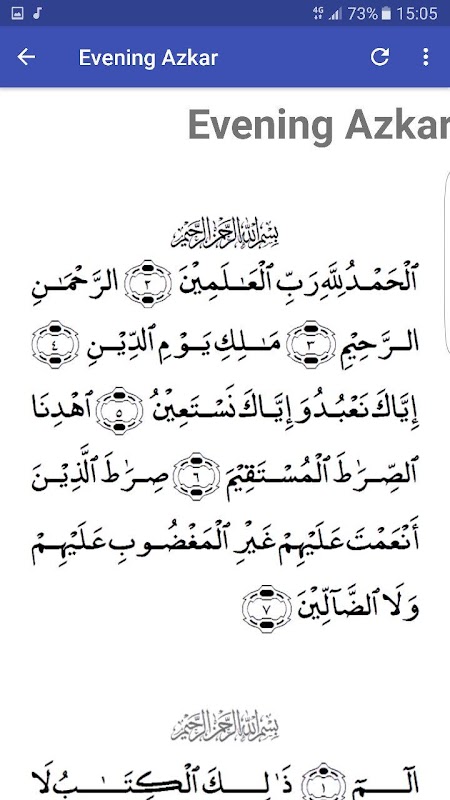 4G 73% 15:05
Evening Azkar
Evening Azkar
بِسْمِ ٱللَّهِ ٱلرَّحْمَٰنِ ٱلرَّحِيمِ
ٱلْحَمْدُ لِلَّهِ رَبِّ ٱلْعَٰلَمِينَ ٢ ٱلرَّحْمَٰنِ
ٱلرَّحِيمِ ٣ مَٰلِكِ يَوْمِ ٱلدِّينِ ٤
إِيَّاكَ نَعْبُدُ وَإِيَّاكَ نَسْتَعِينُ ٥ ٱهْدِنَا
ٱلصِّرَٰطَ ٱلْمُسْتَقِيمَ ٦ صِرَٰطَ ٱلَّذِينَ
أَنْعَمْتَ عَلَيْهِمْ غَيْرِ ٱلْمَغْضُوبِ عَلَيْهِمْ
وَلَا ٱلضَّآلِّينَ ٧
بِسْمِ ٱللَّهِ ٱلرَّحْمَٰنِ ٱلرَّحِيمِ
الٓمٓ ١ ذَٰلِكَ ٱلْكِتَٰبُ لَا